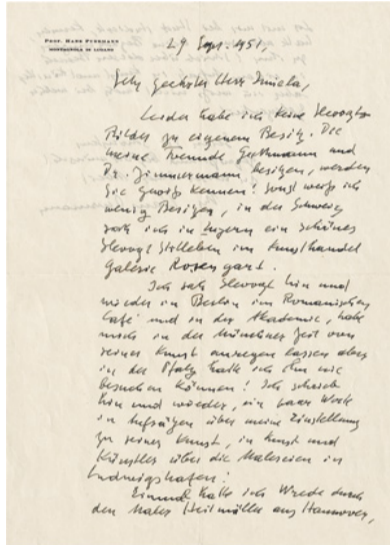 PROF. HANS PURRMANN
MONTAGNOLA DI LUGANO
29 Sept. 1951,
Sehr geehrter Herr
Leider habe ich keine Slevogt
Bilder zu eigenem Besitz. Die
meine Freunde Guthmann und
Dr. Zimmermann besitzen, werden
Sie gewiss kennen! Sonst weiss ich
wenig Besitzer, in der Schweiz
sah ich in Luzern ein schönes
Slevogt Stilleben im Kunsthandel
Galerie Rosengart.
Ich sah Slevogt hin und
wieder in Berlin im Romanischen
Café und in der Akademie, habe
mich in der Münchner Zeit von
seiner Kunst anregen lassen aber
in der Pfalz hatte ich ihn nie
besuchen können! Ich schrieb
hin und wieder, ein paar Worte
in Aufsätzen über meine Einstellung
zu seiner Kunst, in Kunst und
Künstler über die Malereien in
Ludwigshafen!
Einmal hatte ich Wrede durch
den Maler Heilmüller aus Hannover,